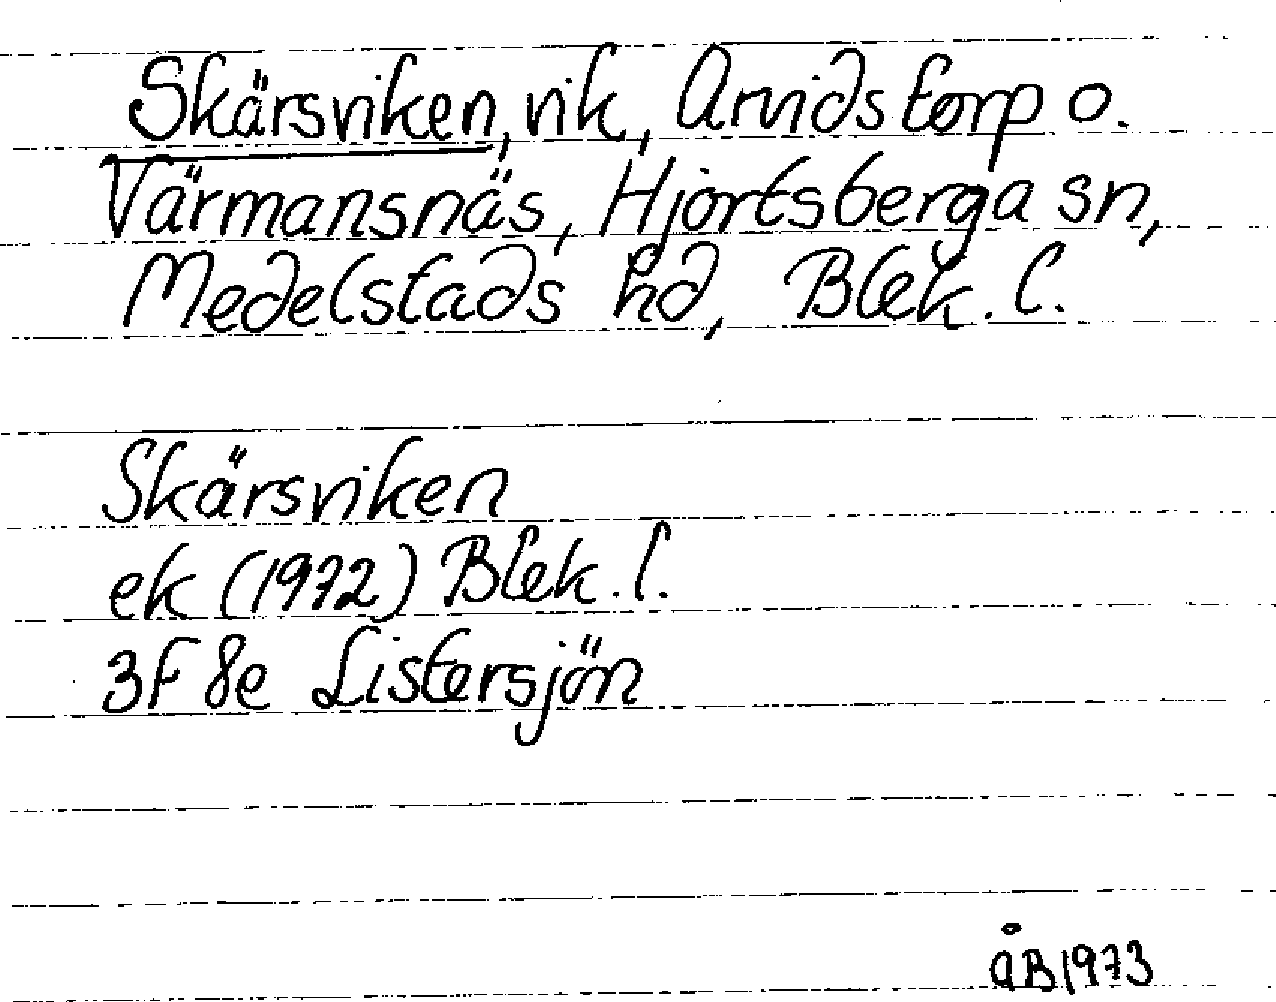 Skärsviken, vik, Arvidstorp o.
Värmansnäs, Hjortsberga sn,
Medelstads hd, Blek. l.
Skärsviken
ek (1972) Blek. l.
3F 8e Listersjön
ÅB 1973